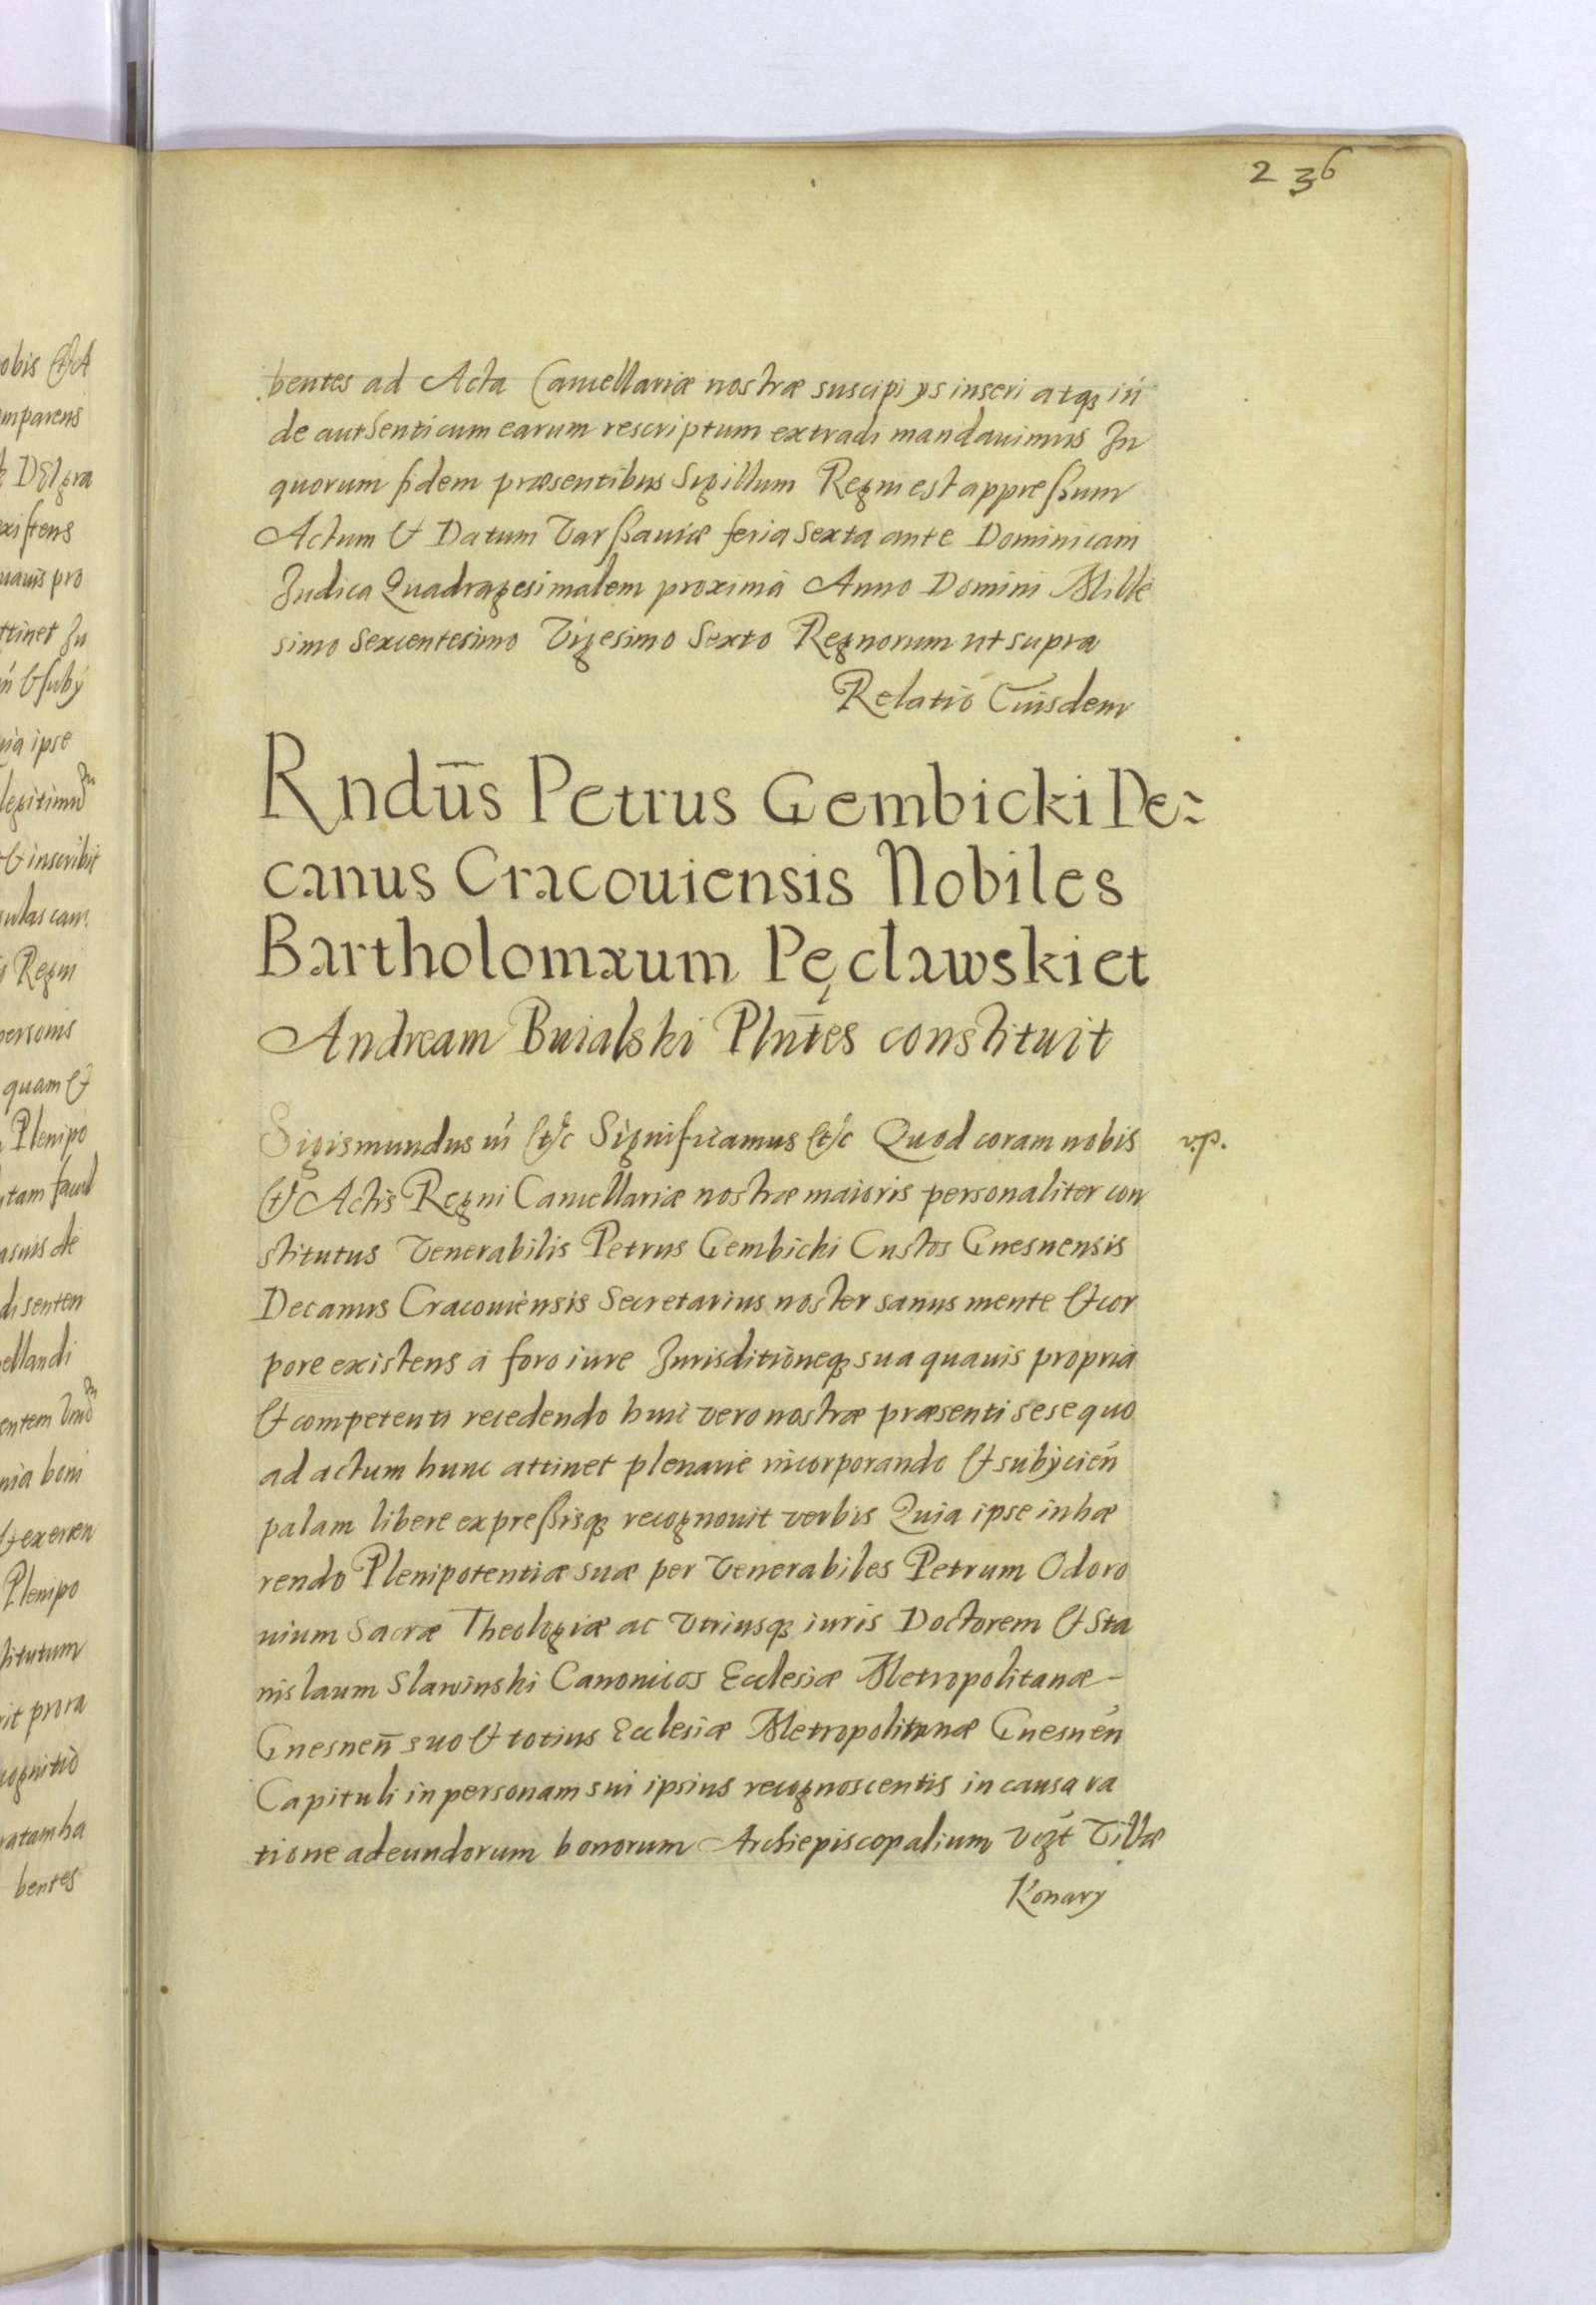 236
bentes ad Acta Cancellariæ nostræ suscipi ys inseri atq̃ in
de authenticum earum rescriptum extradi mandauimus In
quorum fidem præsentibus Sigillum Regni est appreßum
Actum & Datum Varßauiæ feria Sexta ante Dominicam
Iudica Quadragesimalem proxima Anno Domini Mille
simo Sexcentesimo Vigesimo Sexto Regnorum ut supra
Relatio Eiusdem
Rndūs Petrus Gembicki De-
canus Cracouiensis Nobiles
Bartholomæum Pęclawski et
Andream Buialski Plñtes constituit
Sigismundus III &c Significamus &c Quod coram nobis
v.p.
& Actis Regni Cancellariæ nostræ maioris personaliter con
stitutus Venerabilis Petrus Gembicki Custos Gnesnensis
Decanus Cracouiensis Secretarius noster sanus mente & cor
pore existens a foro iure Iurisditioneq̃ sua quauis propria
& competenti recedendo huic vero nostræ præsenti sese quo
ad actum hunc attinet plenarie incorporando & subijcień
palam libere expreßisq̃ recognouit verbis Quia ipse inhæ
rendo Plenipotentiæ suæ per Venerabiles Petrum Odoro
uium Sacræ Theologiæ ac Vtriusq̃ iuris Doctorem & Sta
nislaum Slawinski Canonicos Ecclesiæ Metropolitanæ-
Gnesneñ suo & totius Ecclesiæ Metropolitanæ Gnesneń
Capituli in personam sui ipsius recognoscentis in causa ra
tione adeundorum bonorum Archiepiscopalium vigt́ Villæ
Konary